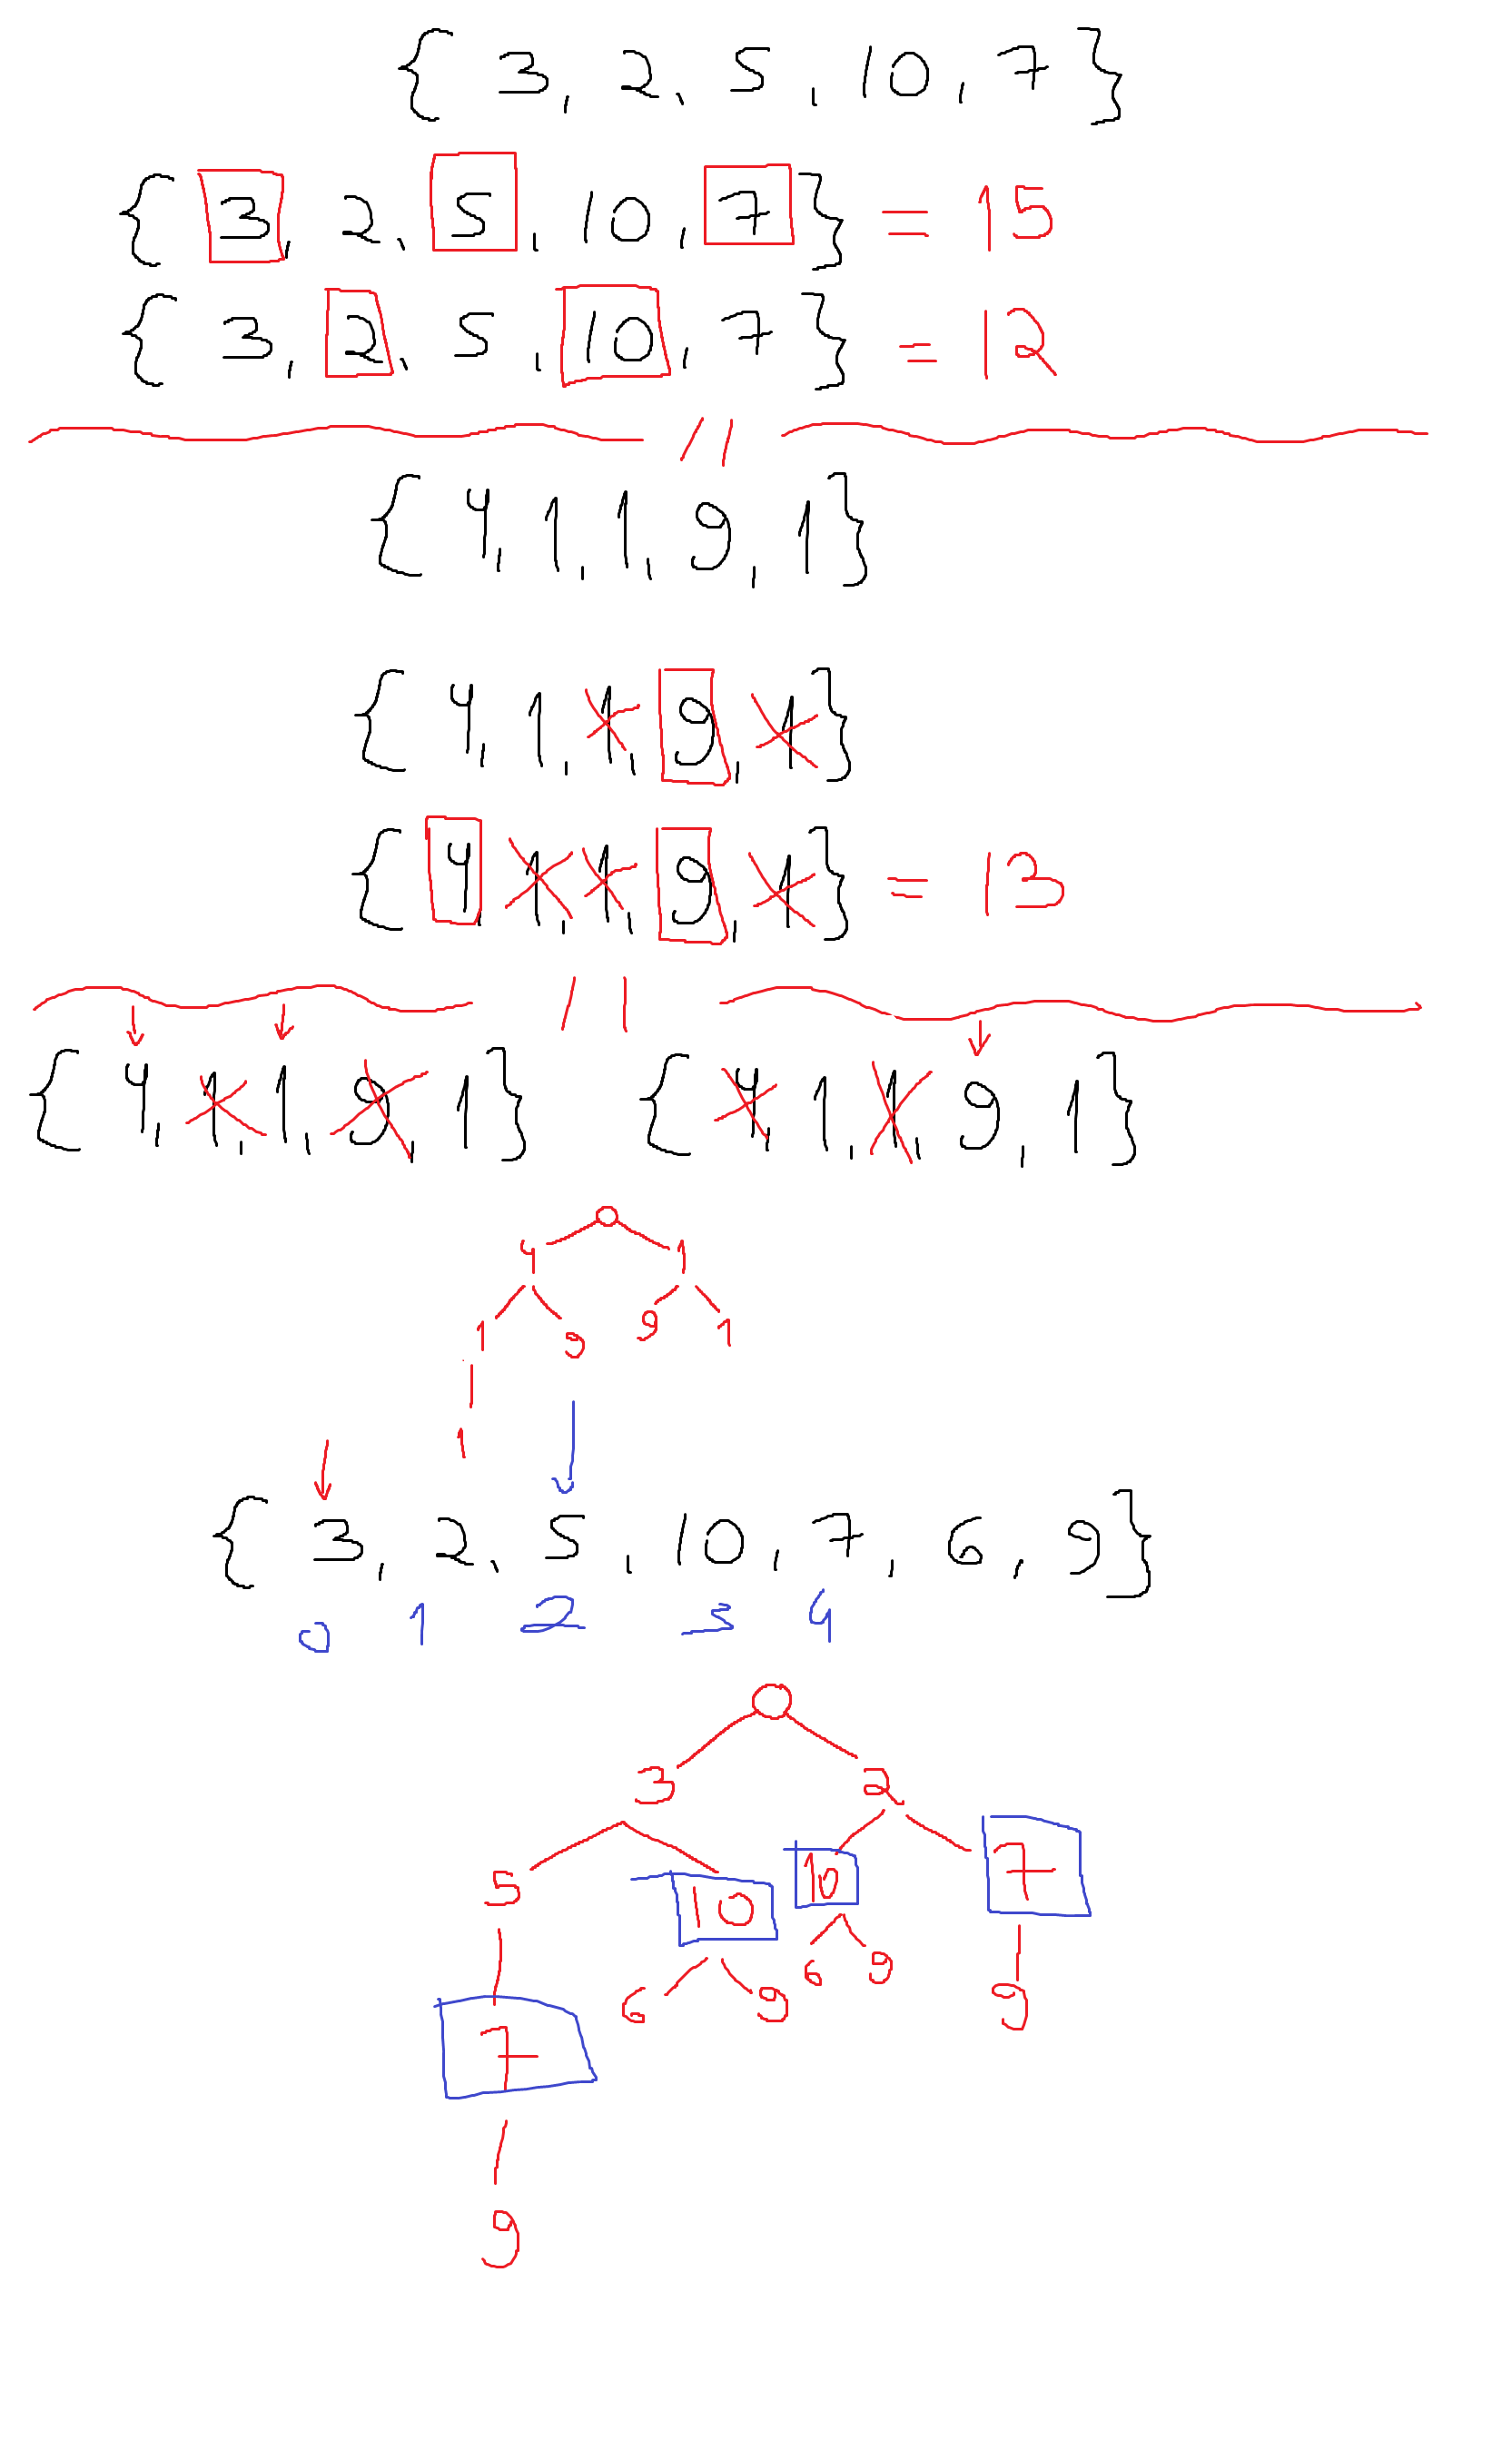 { 3, 2, 5, 10, 7 }
{ 3, 2, 5, 10, 7 } = 15
{ 3, 2, 5, 10, 7 } = 12
//
{ 4, 1, 1, 9, 1 }
{ 4, 1, 1, 9, 1 }
{ 4, 1, 1, 9, 1 } = 13
//
{ 4, 1, 1, 9, 1 } { 4, 1, 1, 9, 1 }
4 1
1 9 9 1
1
{ 3, 2, 5, 10, 7, 6, 9 }
0 1 2 3 4
3 2
5 10 10 7
7 6 9 6 9 9
9